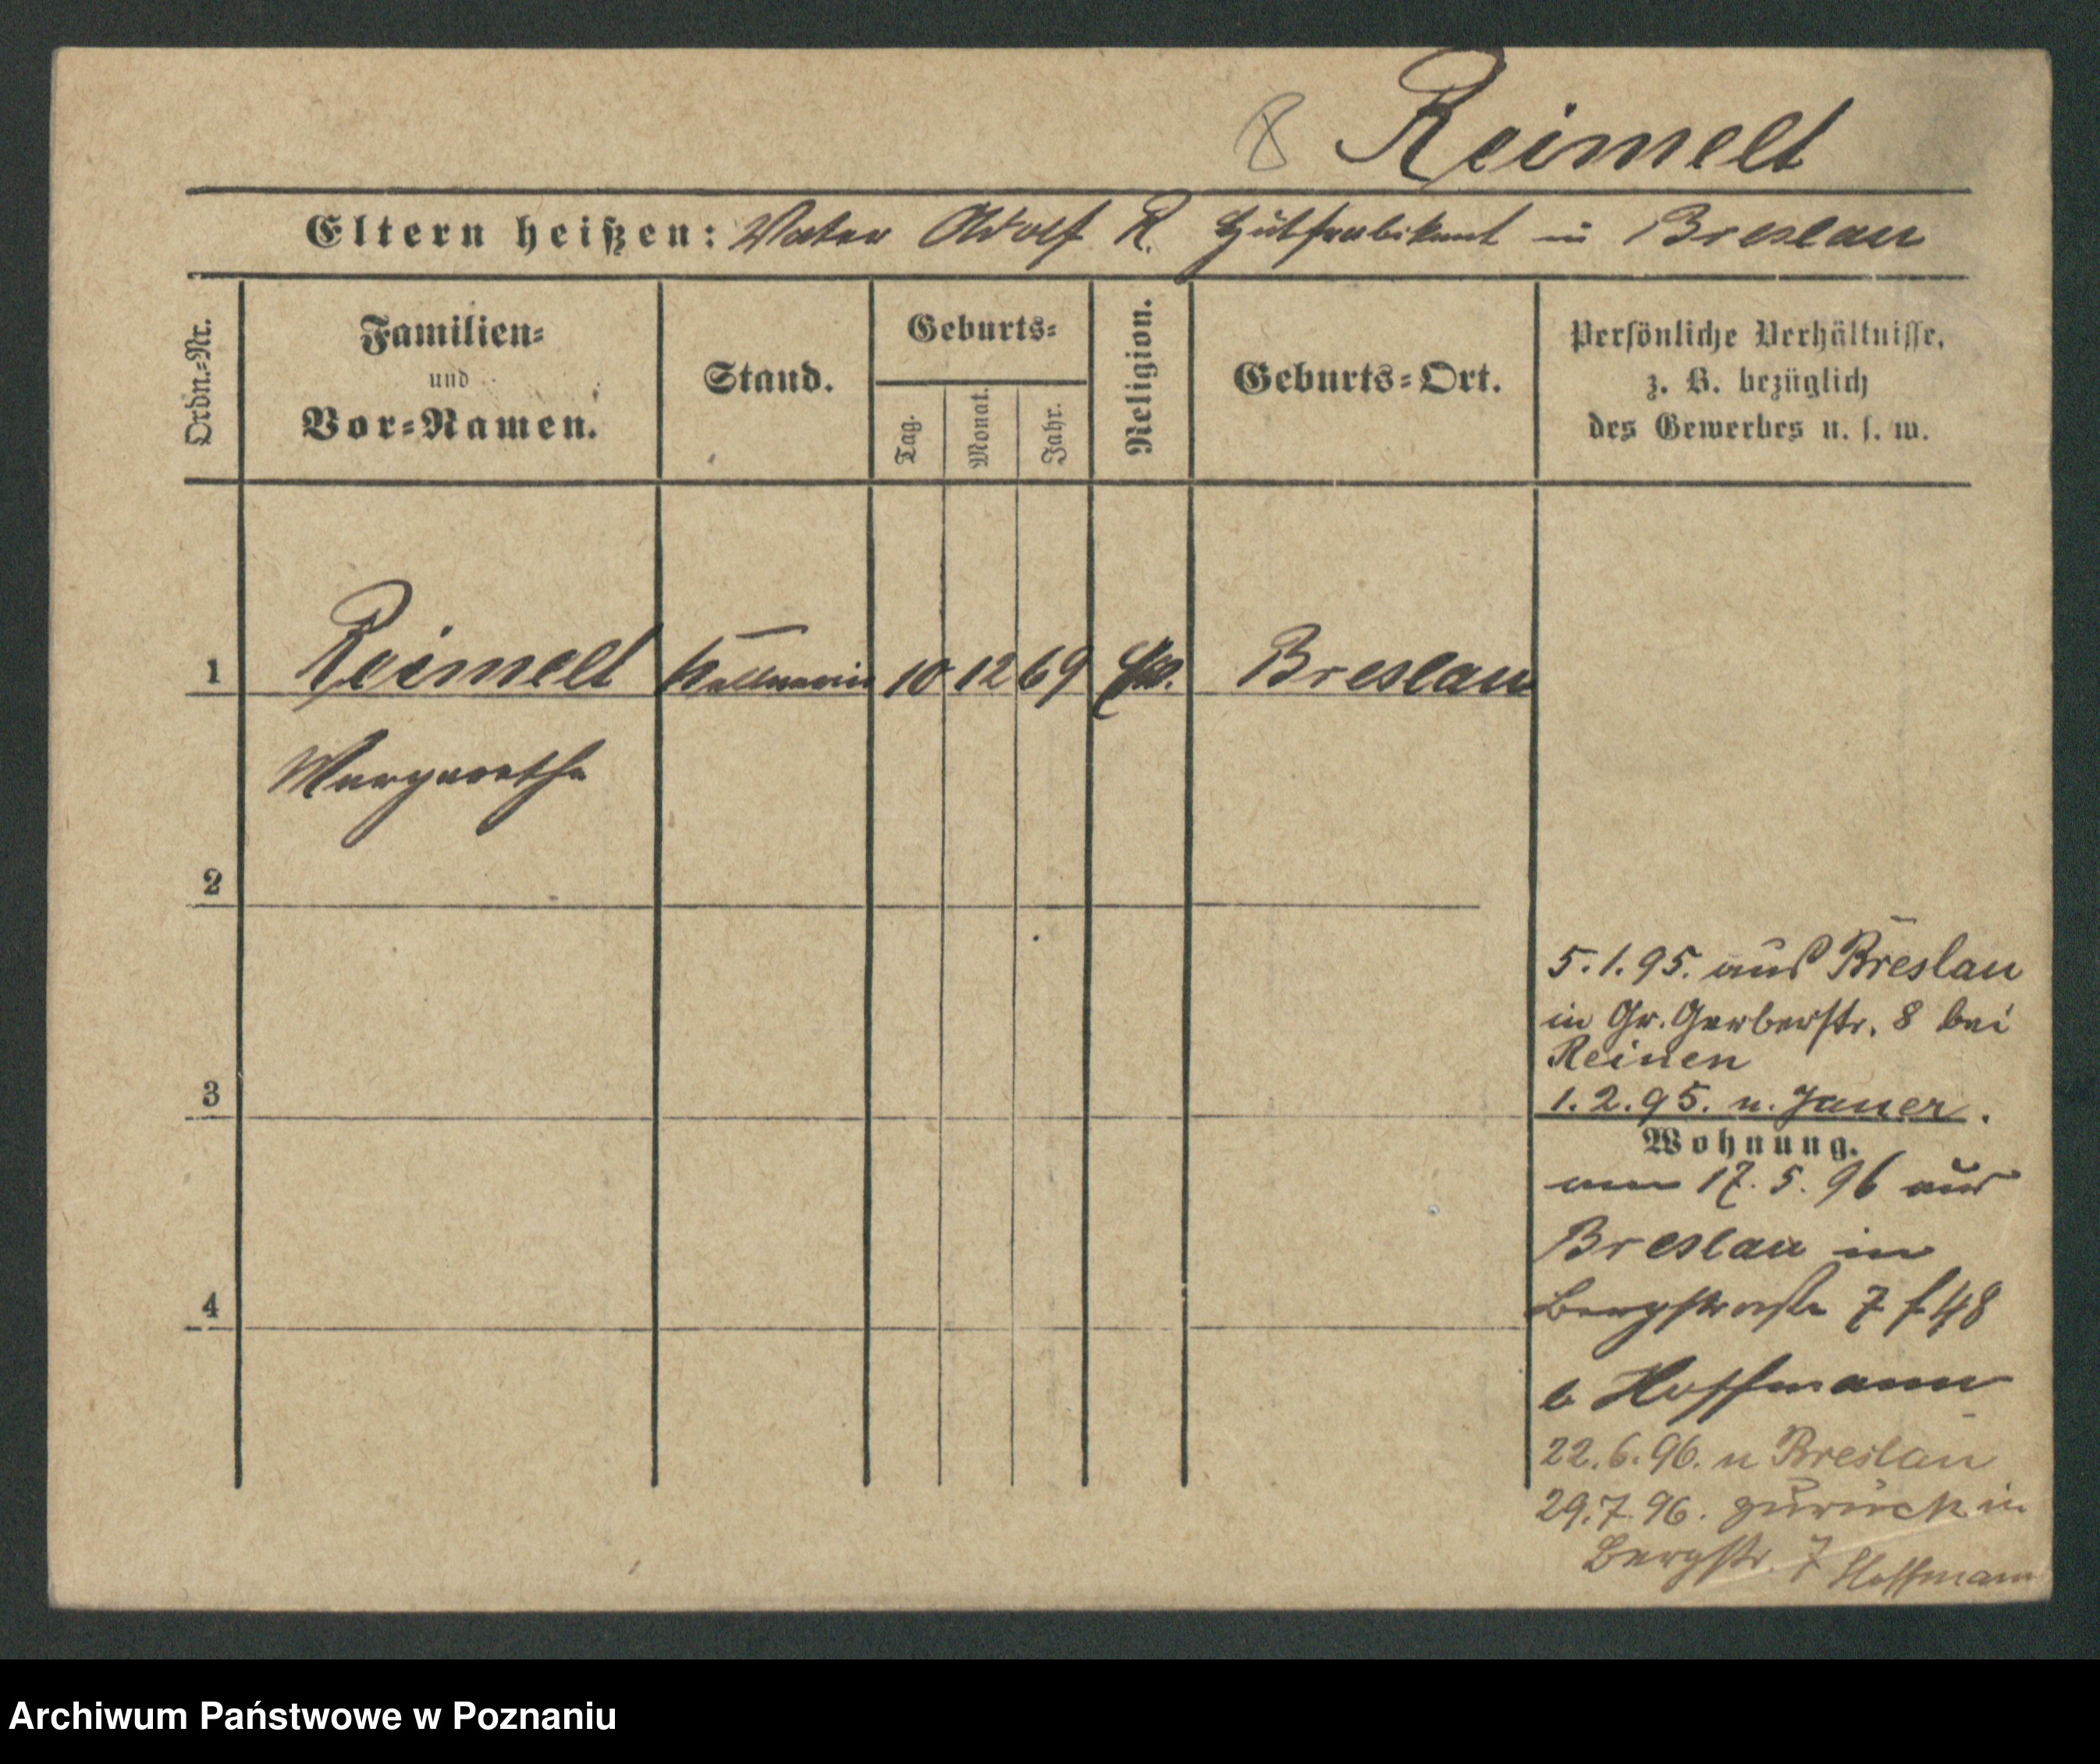 8 Reimelt
Eltern heißen: Vater Adolf R. Hutfabrikant in Breslau
Ordn.-Nr.
Familien-
und
Vor-Namen.
Stand.
Geburts-
Tag.
Monat.
Jahr.
Religion.
Geburts-Ort.
Persönliche Verhältnisse,
z. B. bezüglich
des Gewerbes u. s. w.
1 Reimelt Kellnerin 10 12 69 Breslau
Margarethe
2
3
4
5.1.95. aus Breslau
in Gr. Gerberstr. 8 bei
Reinen
1.2.95. n. Jauer.
Wohnung.
am 17.5.96 aus
Breslau in
Bergstraße 7 f 48
b Hoffmann
22.6.96. n Breslau
29.7.96. zurück in
Bergstr. 7 Hoffmann
Archiwum Państwowe w Poznaniu